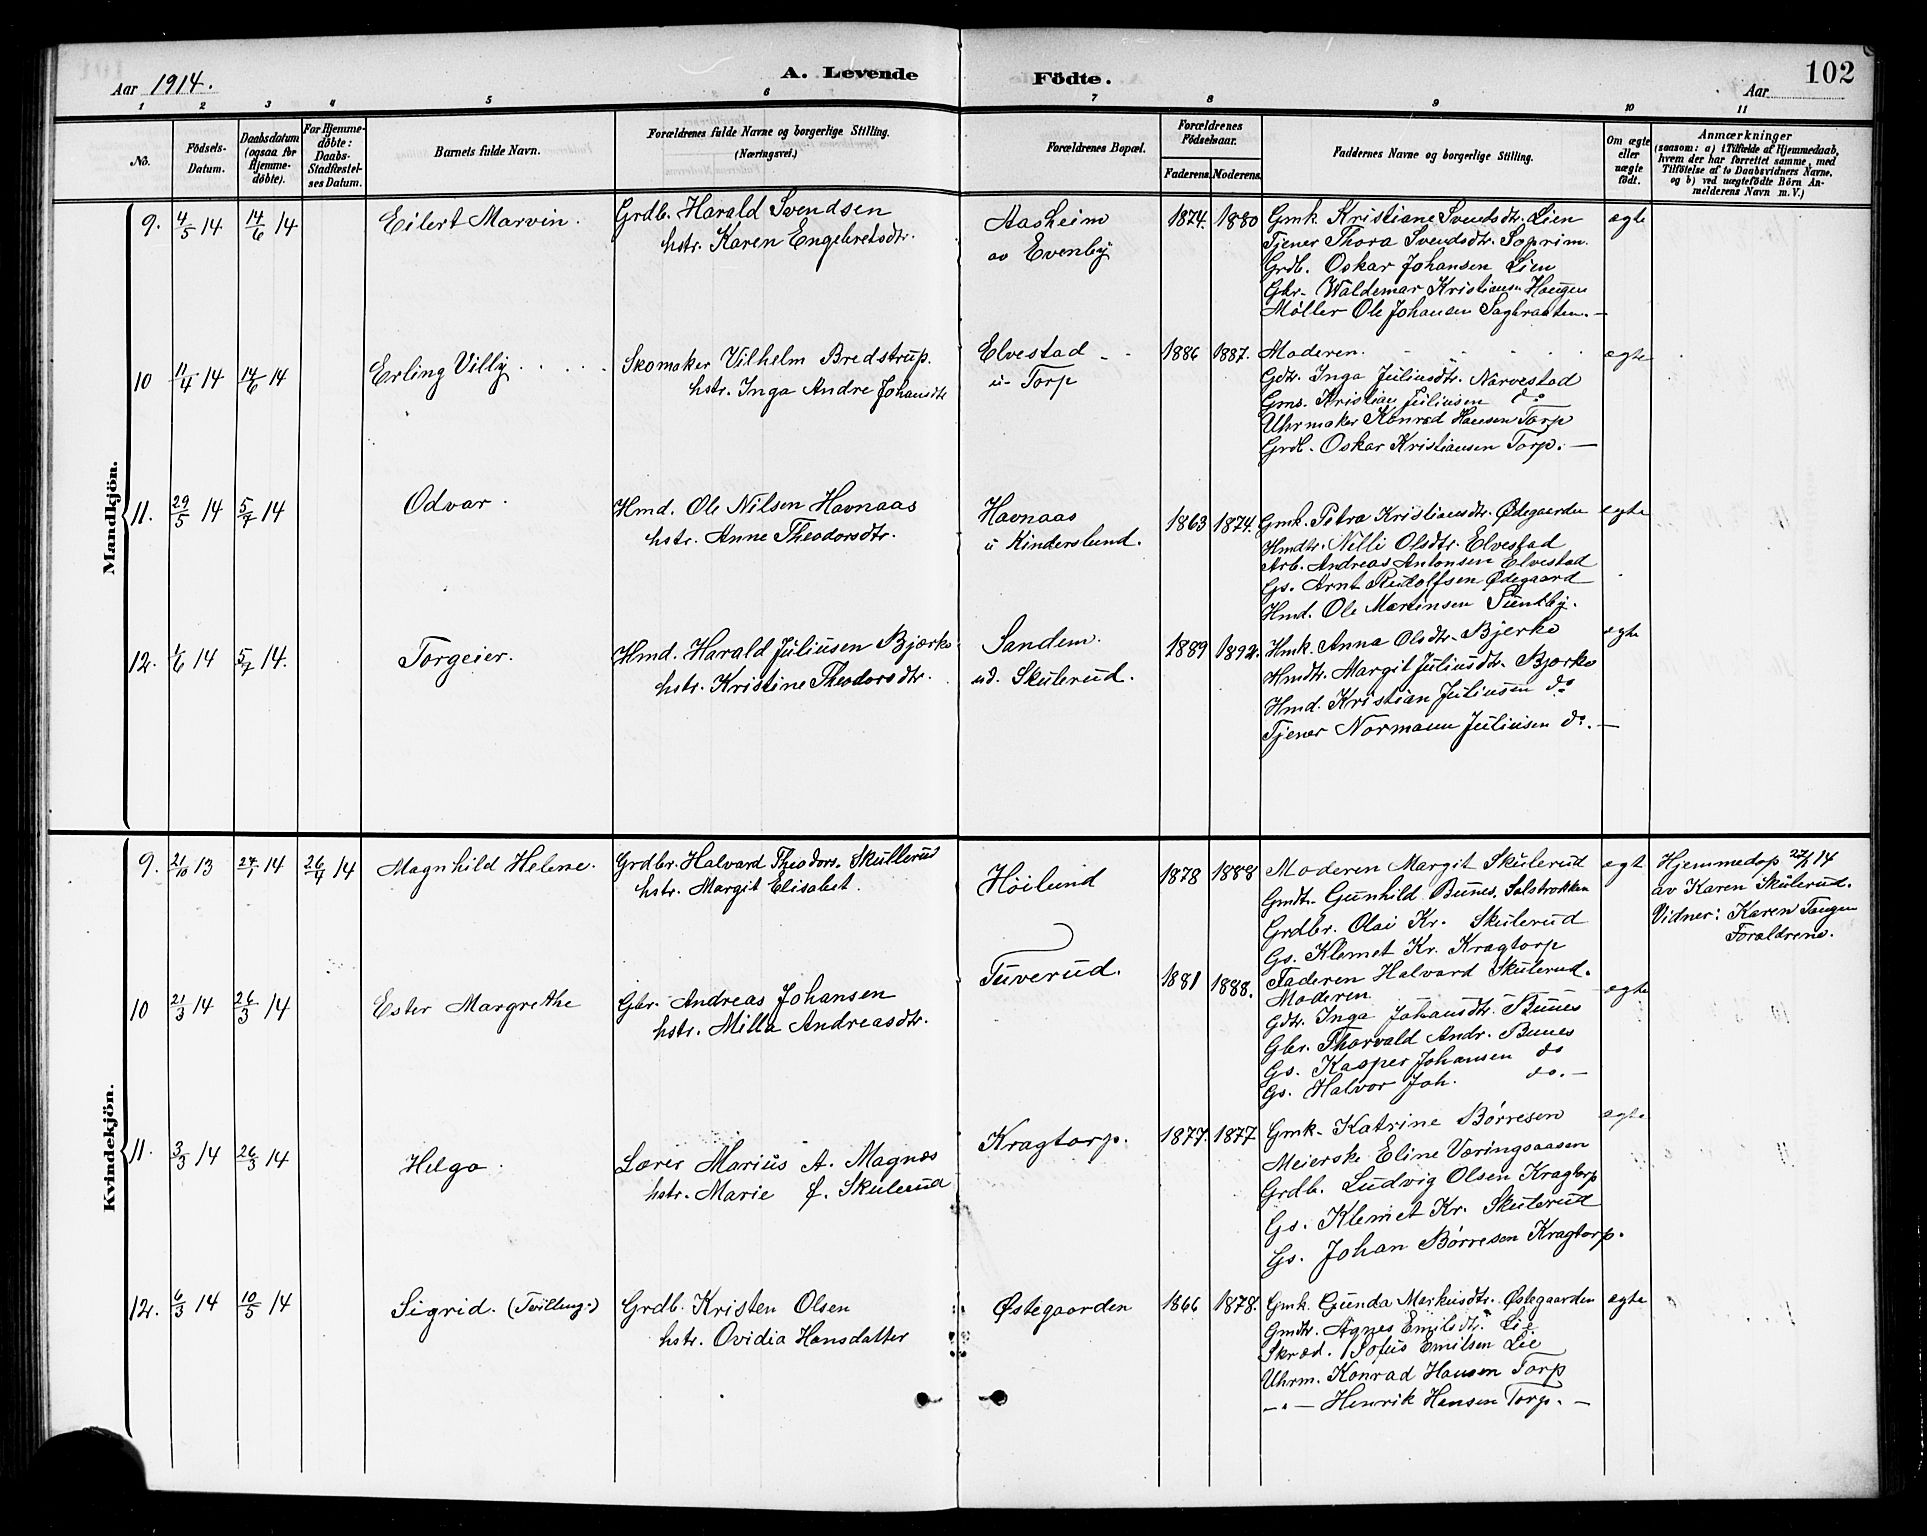 Aar 1914.
A. Levende
Födte.
Aar
102
1 2 3 4 5 6 7 8 9 10 11
No.
Födsels-
Datum.
Daabsdatum
(ogsaa for
Hjemme-
döbte).
For Hjemme-
döbte:
Daabs-
Stadfæstel-
ses Datum.
Barnets fulde Navn.
Forældrenes fulde Navne og borgerlige Stilling.
(Næringsvei.)
Forældrenes Bopæl.
Forældrenes
Födselsaar.
Faderens. Moderens.
Faddernes Navne og borgerlige Stilling.
Om ægte
eller
uægte
födt.
Anmærkninger
(saasom: a) i Tilfælde af Hjemmedaab,
hvem der har forrettet samme, med
Tilföielse af to Daabsvidners Navne.
og b) ved uægtefödte Börn An-
melderens Navn m. V.)
Mandkjön.
9. 4/5 14 14/6 14 Eilert Marvin.
Grdb. Harald Svendsen
hstr. Karen Engebretsdtr.
Aasheim
av Evenby
1874. 1880
Gmk. Kristiane Svendsdtr. Lien
Tjener Thora Svendsdtr. Soprim.
Grdb. Oskar Johansen Lien
Gbr. Waldemar Kristiansen Haugen
Møller Ole Johansen Sagbraaten.
ægte
10 11/4 14 14/6 14 Erling Villy
Skomaker Vilhelm Bredstrup.
hstr. Inga Andre Johansdtr
Elvestad
u. Torp
1886 1887.
Moderen.
Gdtr. Inga Juliusdtr. Narvestad
Gms. Kristian Juliusen do
Uhrmaker Konrad Hansen Torp
Grdb. Oskar Kristiansen Torp.
ægte
11. 29/5 14 5/7 14 Odvar.
Hmd. Ole Nilsen Havnaas
hstr. Anne Theodorsdtr.
Havnaas
u Kinderslund.
1863 1874.
Gmk. Petra Kristiansdtr. Ødegaarden
Hmdtr. Nilli Olsdtr. Elvestad
Arb. Andreas Antonsen Elvestad
Gs. Arnt Rudolfsen Ødegaard
Hmd. Ole Martinsen Sundby.
ægte
12. 1/6 14 5/7 14. Torgeier.
Hmd. Harald Juliusen Bjerke
hstr. Kristine Theodorsdtr.
Sandem.
ud. Skulerud.
1889 1892.
Hmk. Anna Olsdtr. Bjerke
Hmdtr. Margit Juliusdtr. Bjerke
Hmd. Kristian Juliusen do
Tjener Normann Juliusen do.
ægte
Kvindekjön.
9. 21/10 13 27/1 14 26/4 14 Magnhild Helene.
Grdbr. Halvard Theodors. Skullerud
hstr. Margit Elisabet.
Höilund
1878 1888
Moderen Margit Skulerud
Gmdtr. Gunhild Bunes,
Grdbr. Olai Kr. Skulerud
Gs. Klemet Kr. Kragtorp
Faderen Halvard Skulerud.
ægt
Hjemmedøp 27/1 14
av Karen Skulerud.
Vidner: Karen Tangen
Forældrene.
10 21/3 14 26/3 14 Ester Margrethe
Gbr. Andreas Johansen
hstr. Milla Andreasdtr.
Tuverud.
1881 1888.
Moderen
Gdtr. Inga Johansdtr. Bunes
Gbr. Thorvald Andr. Bunes
Gs. Kasper Johansen do
Gs. Halvor Joh. do.
ægte
11. 3/3 14 26/3 14 Helga.
Lærer Marius A. Magnes
hstr. Marie f. Skulerud
Kragtorp.
1877. 1877
Gmk. Katrine Børresen
Meierske Eline Væringsaasen
Grdb. Ludvig Olsen Kragtorp
Gs. Klemet Kr. Skulerud
Gs. Johan Børresen Kragtorp.
ægte
12. 6/3 14 10/5 14 Sigrid. (Tvilling:)
Grdb. Kristen Olsen
hstr. Ovidia Hansdatter
Østegaarden
1866 1878.
Gmk. Gunda Markusdtr. Østegaarden
Gmdtr. Agnes Emilsdtr. Lie
Skræd. Sofus Emilsen Lie
Uhrm. Konrad Hansen Torp
— " — Henrik Hansen Torp.
ægte